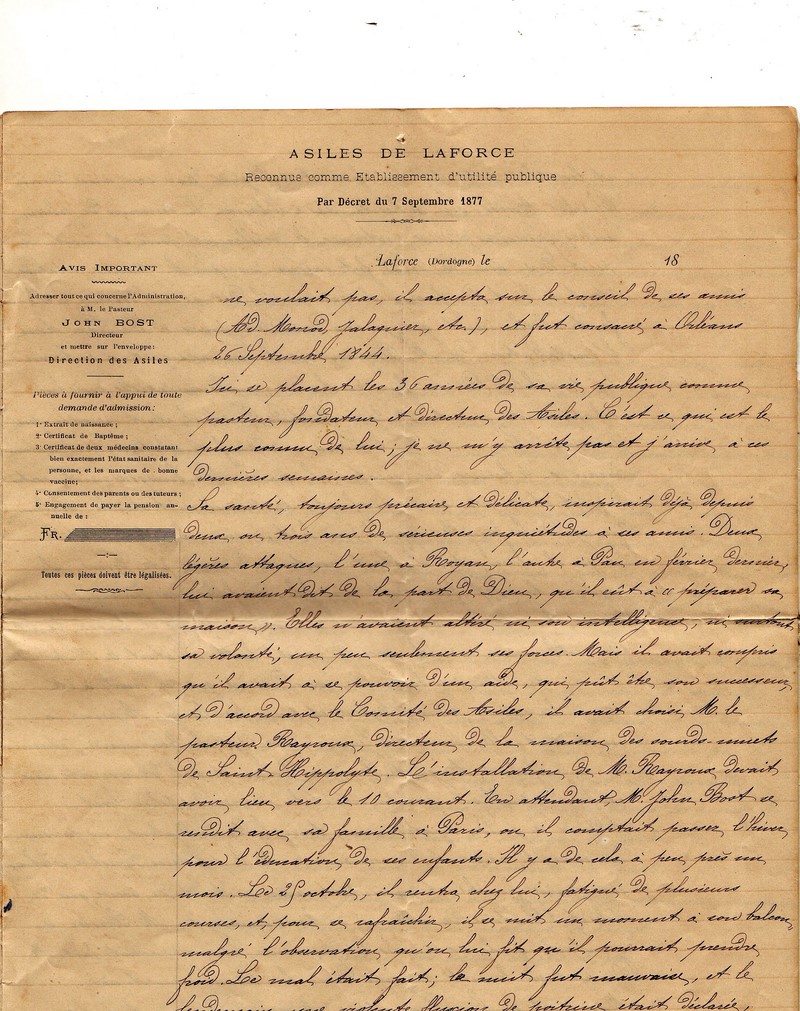 ASILES DE LAFORCE
Reconnus comme Etablissement d'utilité publique
Par Décret du 7 Septembre 1877
Laforce (Dordogne) le 18
AVIS IMPORTANT
Adresser tout ce qui concerne l'Administration,
à M. le Pasteur
JOHN BOST
Directeur
et mettre sur l'enveloppe:
Direction des Asiles
Pièces à fournir à l'appui de toute
demande d'admission:
1° Extrait de naissance;
2° Certificat de Baptême;
3° Certificat de deux médecins constatant
bien exactement l'état sanitaire de la
personne, et les marques de bonne
vaccine;
4° Consentement des parents ou des tuteurs;
5° Engagement de payer la pension an-
nuelle de:
FR.
Toutes ces pièces doivent être légalisées.
ne voulait pas, il accepta sur le conseil de ses amis
(Ad. Monod, Jalaguier, etc), et fut consacré à Orléans
26 Septembre 1844.
Ici se placent les 36 années de sa vie publique comme
pasteur, fondateur et directeur des Asiles. C'est ce qui est le
plus connu de lui; je ne m'y arrête pas et j'arrive à ces
dernières semaines.
Sa santé, toujours précaire et délicate, inspirait déjà depuis
deux ou trois ans de sérieuses inquiétudes à ses amis. Deux
légères attaques, l'une à Royan, l'autre à Pau en février dernier,
lui avaient dit de la part de Dieu, qu'il eût à « préparer sa
maison ». Elles n'avaient altéré ni son intelligence, ni surtout
sa volonté, un peu seulement ses forces. Mais il avait compris
qu'il avait à se pourvoir d'un aide, qui pût être son successeur,
et d'accord avec le Comité des Asiles, il avait choisi M. le
pasteur Rayroux, directeur de la maison des sourds-muets
de Saint Hippolyte. L'installation de M. Rayroux devait
avoir lieu vers le 10 courant. En attendant, M. John Bost se
rendit avec sa famille à Paris, ou il comptait passer l'hiver
pour l'éducation de ses enfants. Il y a de cela à peu près un
mois. Le 25 octobre, il rentra chez lui, fatigué de plusieurs
courses, et pour se rafraîchir, il se mit un moment à son balcon,
malgré l'observation qu'on lui fit qu'il pourrait prendre
froid. Le mal était fait; la nuit fut mauvaise, et le
lendemain une violente fluxion de poitrine était déclarée,